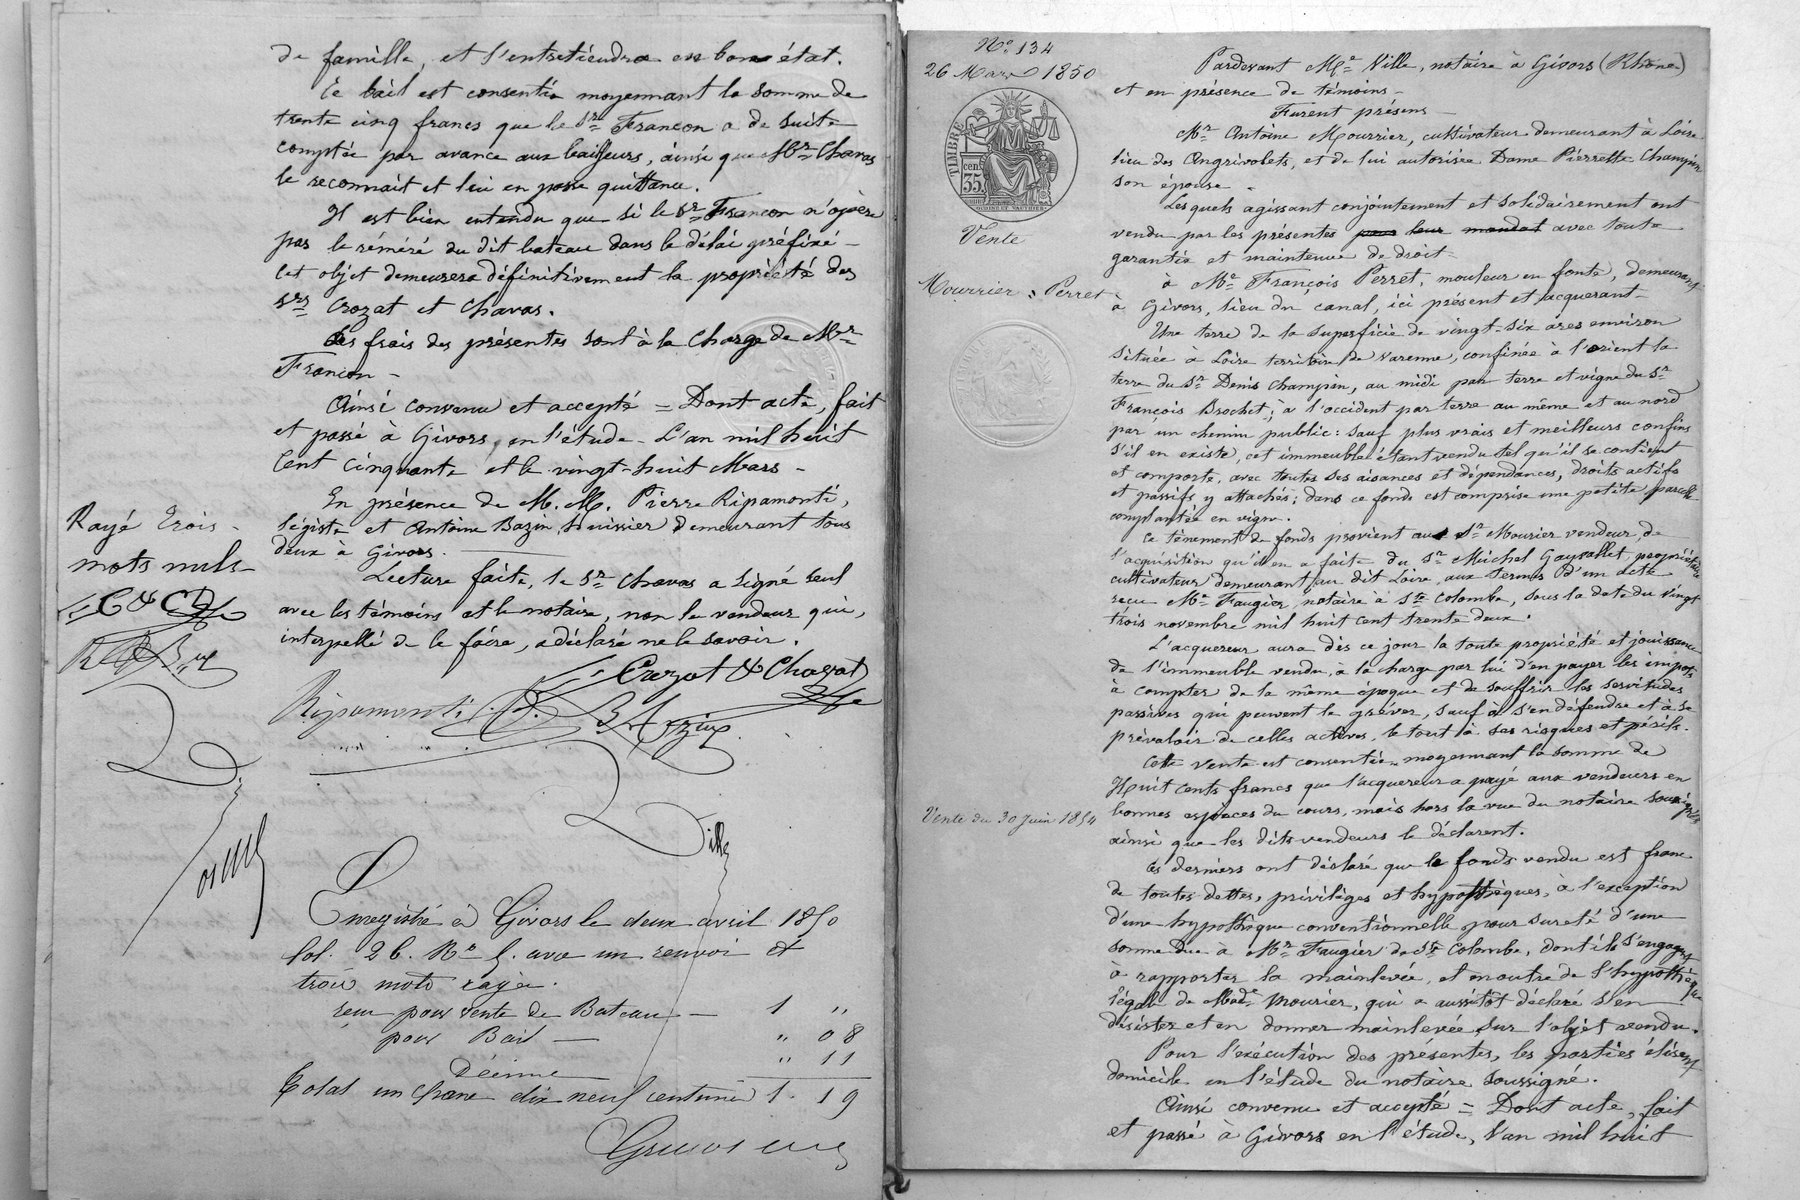 de famille, et l'entretiendra en bon état.
Ce bail est consentie moyennant la somme de
trente cinq francs que le Sr Francon a de suite
comptée par avance aux bailleurs, ainsi que Mr Chavas
le reconnait et lui en passe quittance.
Il est bien entendu que si le Sr Francon n'opère
pas le réméré du dit bateau dans le délai préfixé -
cet objet demeurera définitivement la propriété des
Srs Crozat et Chavas.
Les frais des présentes sont à la charge de Mr
Francon -
Ainsi convenu et accepté = Dont acte, fait
et passé à Givors, en l'étude - L'an mil huit
cent cinquante et le vingt-huit Mars -
En présence de M.M. Pierre Ripamonti,
légiste et Antoine Bazin, huissier demeurant tous
deux à Givors.
Lecture faite, le Sr Chavas a signé seul
avec les témoins et le notaire, non le vendeur qui,
interpellé de le faire, a déclaré ne le savoir.
Rayé trois -
mots nuls -
C & C
Crozat & Chavat
Ripamonti
Bazin
Ville
Enregistré à Givors le deux avril 1850
fol. 26. Ro 5. avec un renvoi et
trois mots rayés.
reçu pour vente de Bateau — 1 "
pour Bail — " 08
Décime " 11
Total un franc dix neuf centimes 1. 19
No 134
26 Mars 1850
TIMBRE
cen.
35.
Vente
Mourrier : Perret
Vente du 30 Juin 1854
Pardevant Me Ville, notaire à Givors (Rhône)
et en présence de témoins -
Furent présens -
Mr Antoine Mourrier, cultivateur demeurant à Loire
lieu des Angrivolets, et de lui autorisée Dame Pierrette Champin
son épouse -
Lesquels agissant conjointement et solidairement ont
vendu par les présentes pour leur mandat avec toute
garantie et maintenue de droit -
à Mr François Perret, mouleur en fonte, demeurant
à Givors, lieu du canal, ici présent et acquerant -
Une terre de la superficie de vingt-six ares environ
située à Loire territoire de Varenne, confinée à l'orient la
terre du Sr Denis Champin, au midi par terre et vigne du Sr
François Brochet ; à l'occident par terre au même et au nord
par un chemin public : sauf plus vrais et meilleurs confins
s'il en existe, cet immeuble étant vendu tel qu'il se contient
et comporte, avec toutes ses aisances et dépendances, droits actifs
et passifs y attachés ; dans ce fonds est comprise une petite parcelle
complantée en vigne.
Ce tènement de fonds provient au Sr Mourier vendeur, de
l'acquisition qu'il en a faite du Sr Michel Gaypallet, propriétaire
cultivateur demeurant au dit Loire, aux termes d'un acte
reçu Me Faugier, notaire à Ste Colombe, sous la date du vingt
trois novembre mil huit cent trente deux.
L'acquereur aura dès ce jour la toute propriété et jouissance
de l'immeuble vendu, à la charge par lui d'en payer les impots
à compter de la même époque et de souffrir les servitudes
passives qui peuvent le gréver, sauf à s'en défendre et à se
prévaloir de celles actives, le tout à ses risques et périls.
Cette vente est consentie moyennant la somme de
Huit cents francs que l'acquereur a payé aux vendeurs en
bonnes espèces du cours, mais hors la vue du notaire soussigné
ainsi que les dits vendeurs le déclarent.
Ces derniers ont déclaré que le fonds vendu est franc
de toutes dettes, privilèges et hypothèques, à l'exception
d'une hypothèque conventionnelle pour sureté d'une
somme due à Mr Faugier de Ste Colombe, dont ils s'engagent
à rapporter la mainlevée, et en outre de l'hypothèque
légale de Made Mourier, qui a aussitôt déclaré s'en
désister et en donner mainlevée sur l'objet vendu.
Pour l'exécution des présentes, les parties élisent
domicile en l'étude du notaire soussigné.
Ainsi convenu et accepté = Dont acte, fait
et passé à Givors en l'étude, l'an mil huit